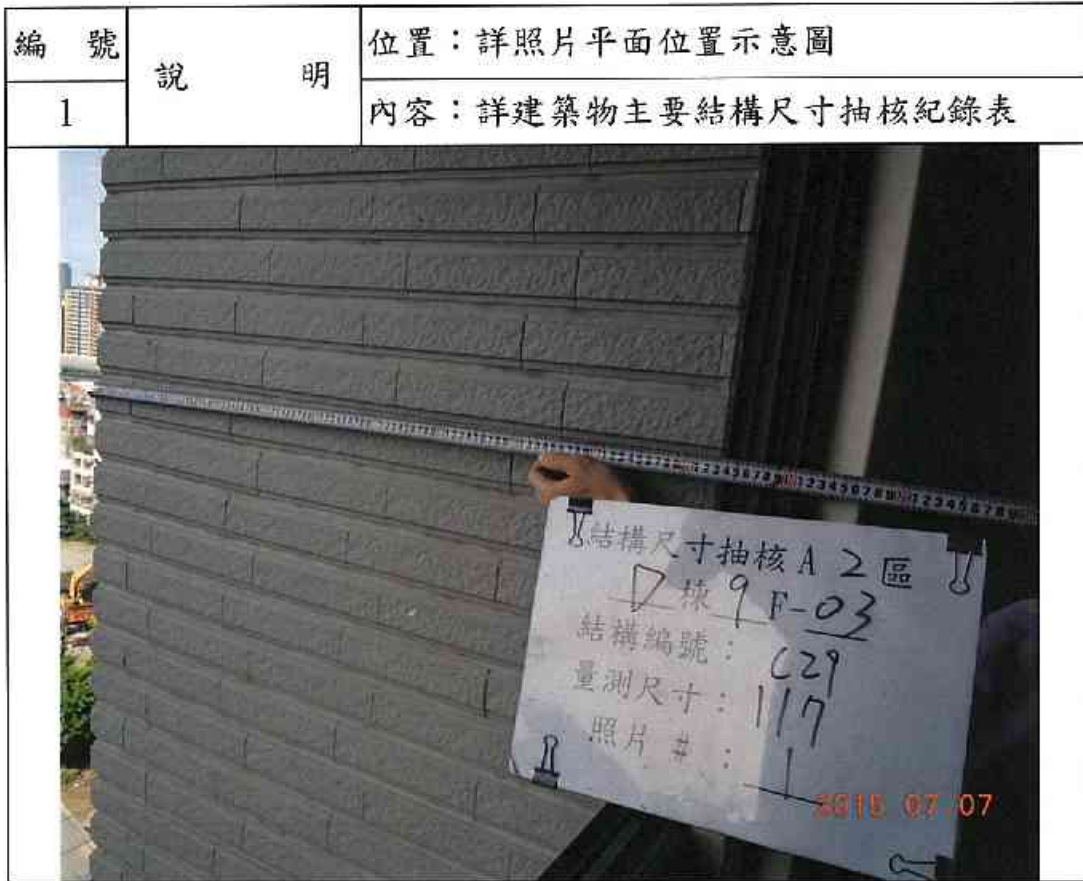 編號
說明
位置：詳照片平面位置示意圖
1
內容：詳建築物主要結構尺寸抽核紀錄表
結構尺寸抽核A 2區
D棟9F-03
結構編號：C29
量測尺寸：117
照片#：1
07 07